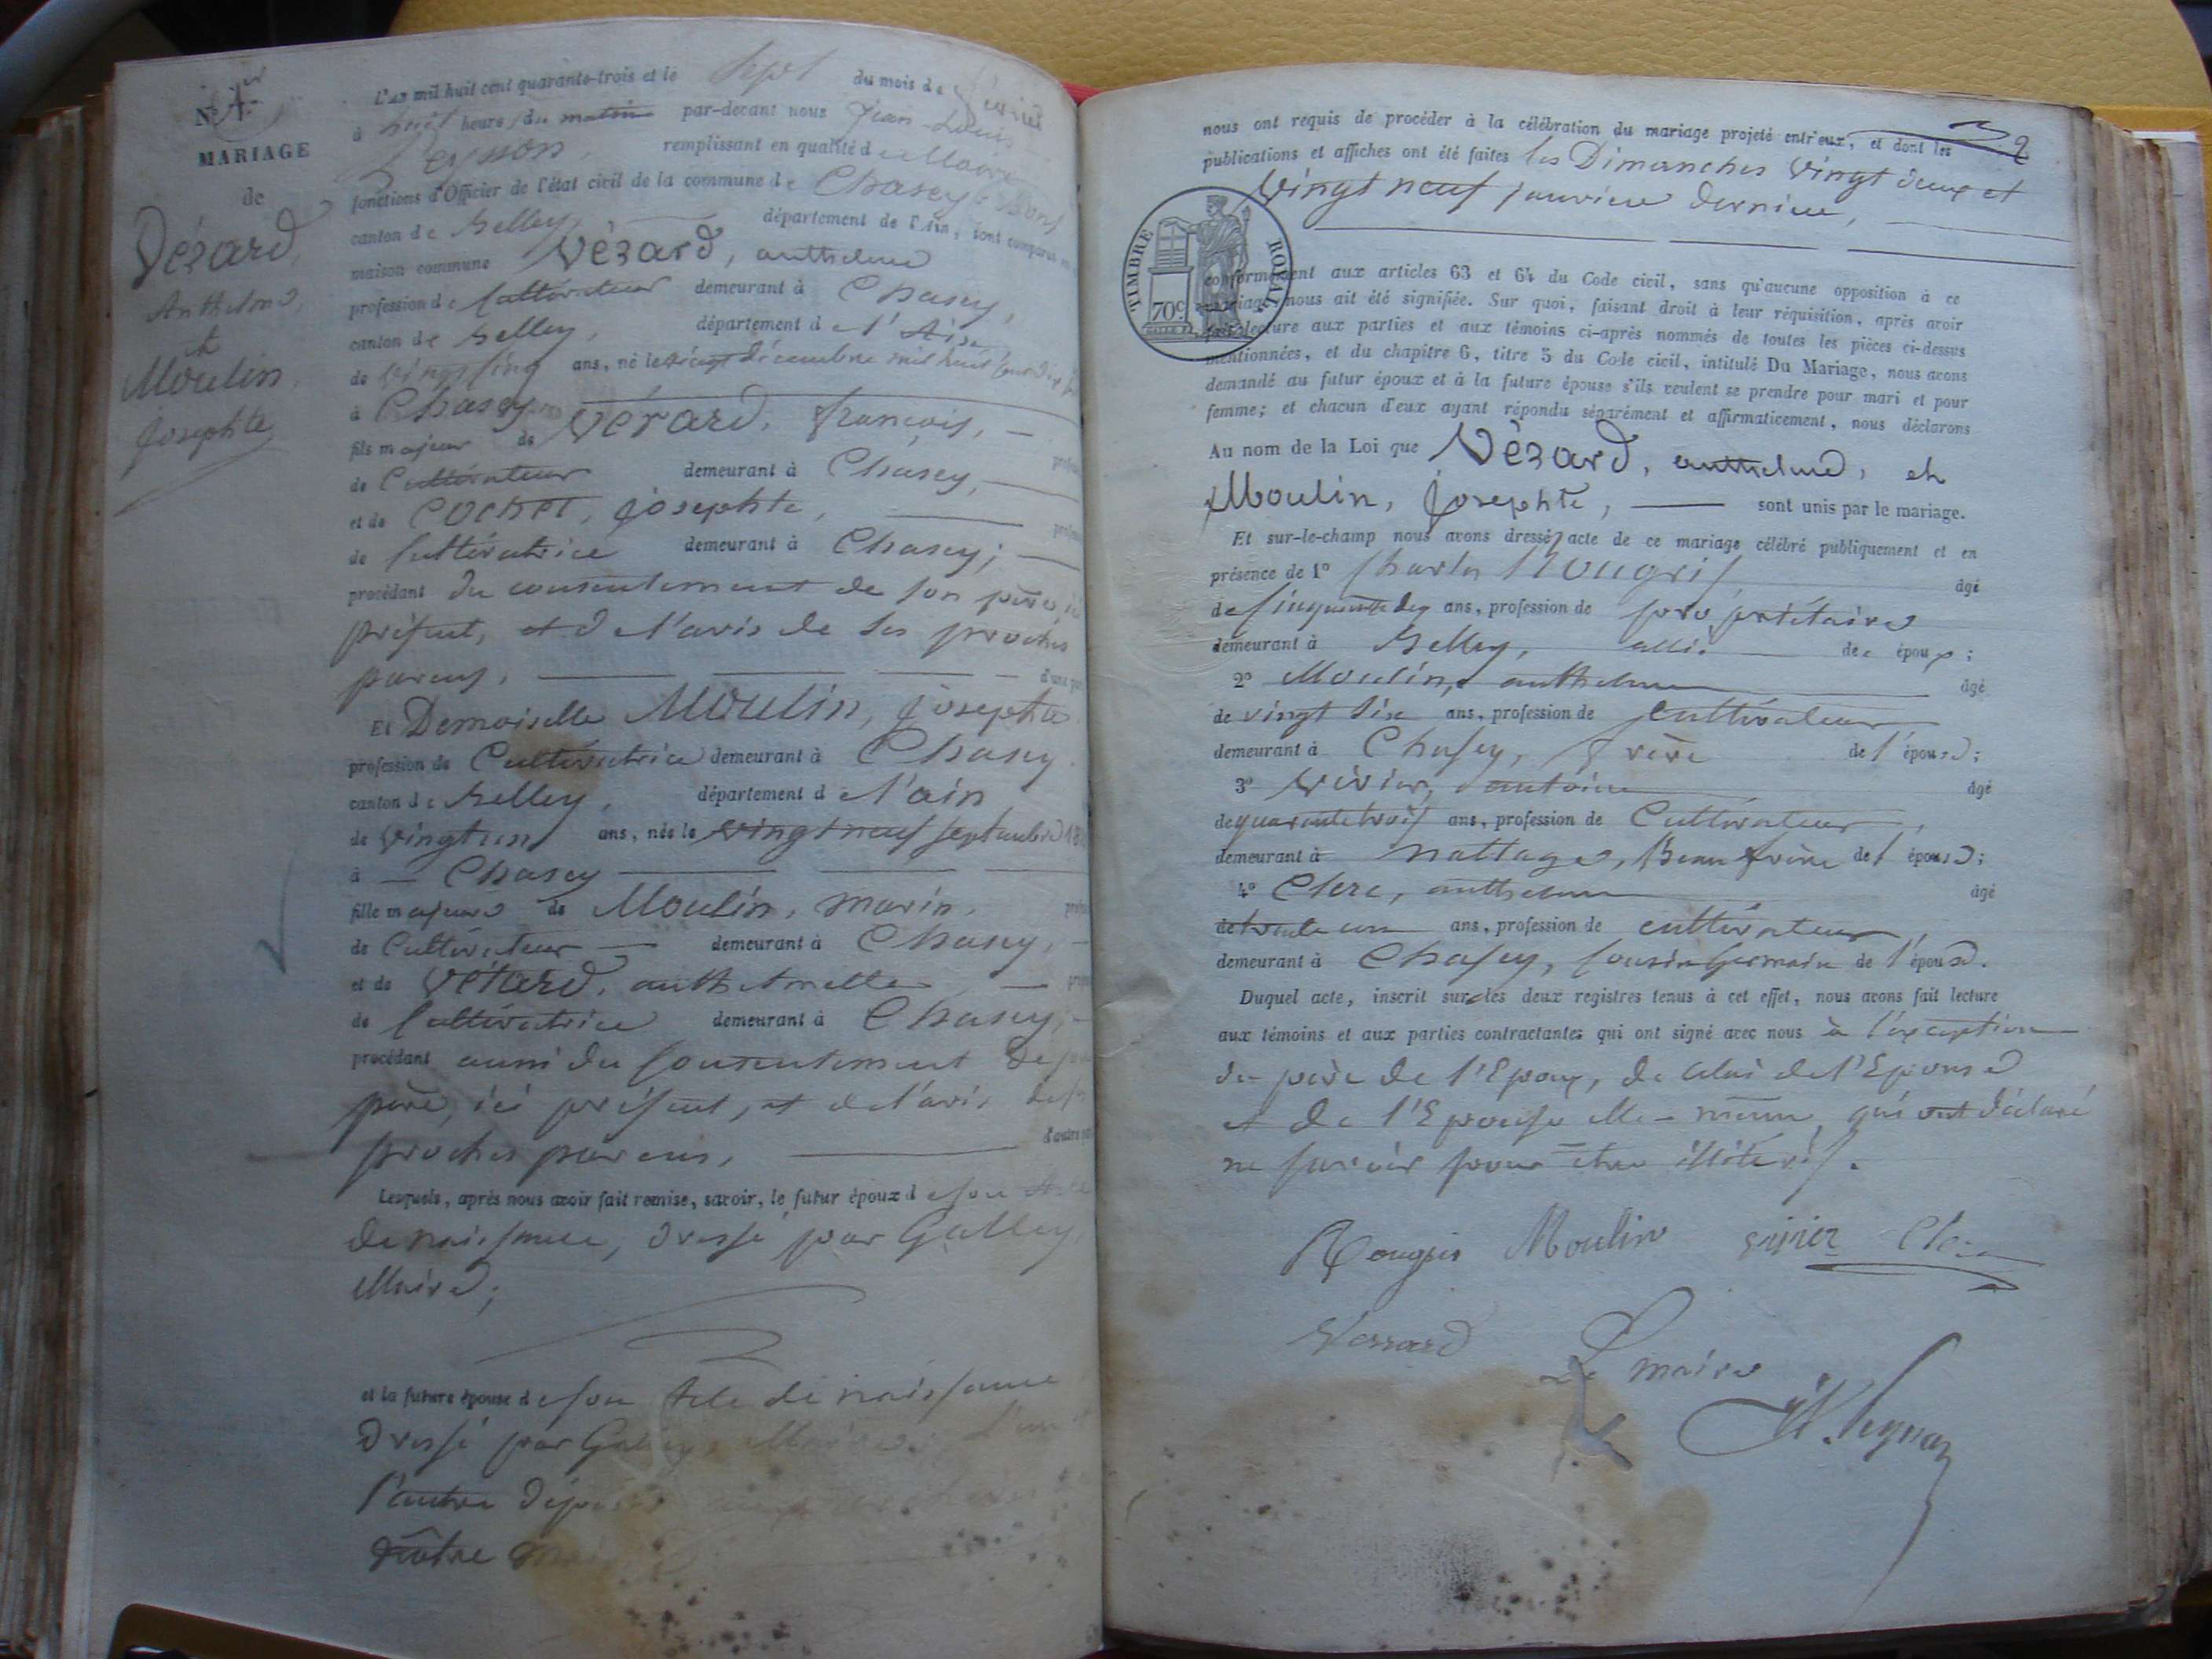 N.° 1.er
MARIAGE
de
Vézard,
Anthelme,
et
Moulin,
Josephte
L'an mil huit cent quarante-trois et le Sept du mois de février
à huit heure du matin par-devant nous Jean Louis
remplissant en qualité de Maire
fonctions d'Officier de l'état civil de la commune de Chazey-Bons
canton de Belley, département de l'Ain, sont comparus en
maison commune Vézard, anthelme
profession de Cultivateur demeurant à Chasey,
canton de Belley, département de l'Ain
de vingt cinq ans, né le vingt décembre mil huit cent dix
à Chasey
fils majeur de Vézard, françois,
de Cultivateur demeurant à Chasey,
et de Cochet, Josephte,
de Cultivatrice demeurant à Chasey;
procédant du consentement de son père, ici
présent, et de l'avis de ses proches
parens, d'une part
Et Demoiselle Moulin, Josephte
profession de Cultivatrice demeurant à Chasey
canton de Belley, département de l'ain
de vingt un ans, née le vingt neuf septembre 18
à Chasey
fille majeure de Moulin, marin,
de Cultivateur demeurant à Chasey,
et de Vétard, anthelmette
de Cultivatrice demeurant à Chasey,
procédant aussi du consentement de son
père, ici présent, et de l'avis de ses
proches parens, d'autre part
Lesquels, après nous avoir fait remise, savoir, le futur époux de son Acte
de naissance, dressé par Galley,
Maire;
et la future épouse de son Acte de naissance
dressé par Galley, Maire, l'un
l'autre dépos
nôtre mai
2
nous ont requis de procéder à la célébration du mariage projeté entr'eux, et dont les
publications et affiches ont été faites les Dimanches vingt deux et
vingt neuf janvier dernier,
TIMBRE ROYAL
70c
conformément aux articles 63 et 64 du Code civil, sans qu'aucune opposition à ce
mariage nous ait été signifiée. Sur quoi, faisant droit à leur réquisition, après avoir
fait lecture aux parties et aux témoins ci-après nommés de toutes les pièces ci-dessus
mentionnées, et du chapitre 6, titre 5 du Code civil, intitulé Du Mariage, nous avons
demandé au futur époux et à la future épouse s'ils veulent se prendre pour mari et pour
femme; et chacun d'eux ayant répondu séparément et affirmativement, nous déclarons
Au nom de la Loi que Vézard, anthelme, et
Moulin, Josephte, sont unis par le mariage.
Et sur-le-champ nous avons dressé acte de ce mariage célébré publiquement et en
présence de 1° Charles Rougris âgé
de cinquante dey ans, profession de propriétaire
demeurant à Belley, allié de l époux;
2° Moulin, anthelme âgé
de vingt six ans, profession de Cultivateur
demeurant à Chasey, frère de l'épouse;
3° Vivier, antoine âgé
de quarante trois ans, profession de Cultivateur,
demeurant à nattages, Beau frère de l épouse;
4° Clerc, anthelme âgé
de trente un ans, profession de cultivateur,
demeurant à Chasey, Cousin Germain de l'épouse.
Duquel acte, inscrit sur les deux registres tenus à cet effet, nous avons fait lecture
aux témoins et aux parties contractantes qui ont signé avec nous à l'exception
du père de l'Epoux, de celui de l'Epouse
et de l'Epouse elle-même, qui ont déclaré
ne savoir pour être illitérés.
Rougris Moulin vivier Clerc
Verrard Le maire